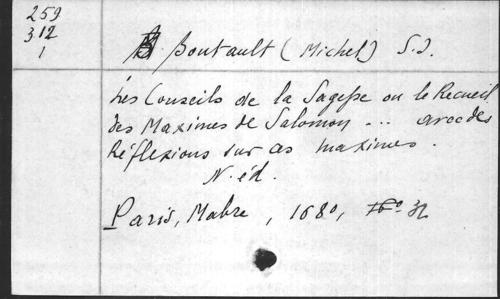 259
312
1
Boutault (Michel) S.J.
Les Conseils de la Sagesse ou le Recueil
des Maximes de Salomon ... avec des
Réflexions sur ces maximes.
N. éd.
Paris, Mabre, 1680,